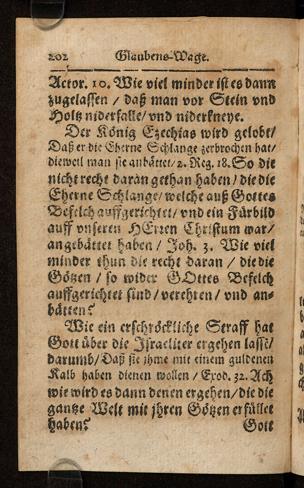 202 Glaubens-Wage.
Actor. 10. Wie viel minder ist es dann
zugelassen / daß man vor Stein vnd
Holtz niderfalle / vnd niderkneye.
Der König Ezechias wird gelobet /
Daß er die Eherne Schlange zerbrochen hat /
dieweil man sie anbättet / 2. Reg. 18. So die
nicht recht daran gethan haben / die die
Eherne Schlange / welche auß Gottes
Befelch auffgerichtet / vnd ein Fürbild
auff vnseren HErren Christum war /
angebättet haben / Joh. 3. Wie viel
minder thun die recht daran / die die
Götzen / so wider GOttes Befelch
auffgerichtet sind / verehren / vnd an-
bätten?
Wie ein erschröckliche Straff hat
Gott über die Israeliter ergehen lasse /
darumb / Daß sie ihme mit einem guldenen
Kalb haben dienen wollen / Exod. 32. Ach
wie wird es dann denen ergehen / die die
gantze Welt mit jhren Götzen erfüllet
haben?
Gott